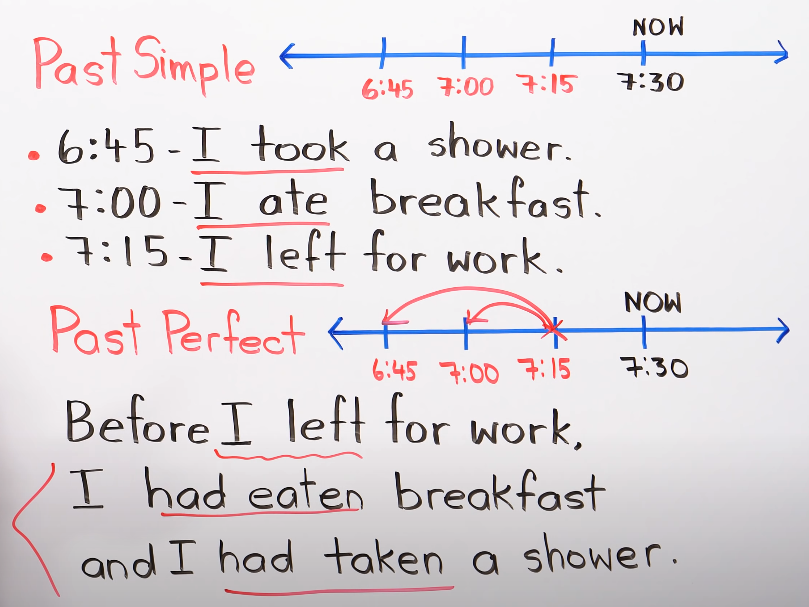 NOW
Past Simple
6:45 7:00 7:15 7:30
• 6:45 - I took a shower.
• 7:00 - I ate breakfast.
• 7:15 - I left for work.
NOW
Past Perfect
6:45 7:00 7:15 7:30
Before I left for work,
I had eaten breakfast
and I had taken a shower.